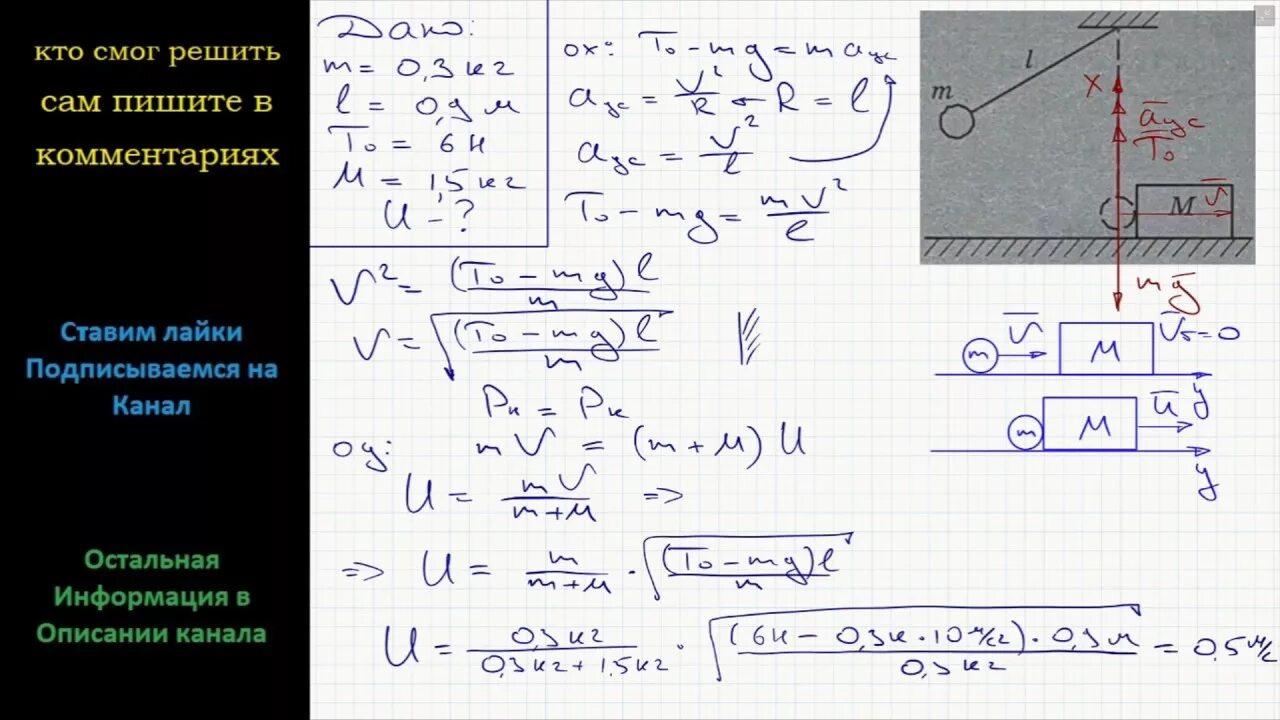 кто смог решить
сам пишите в
комментариях
Ставим лайки
Подписываемся на
Канал
Остальная
Информация в
Описании канала
Дано:
m = 0,3 кг
l = 0,9 м
T₀ = 6 Н
M = 1,5 кг
U - ?
ox: T₀ - mg = m a_цс
a_цс = V²/R ← R = l
a_цс = V²/l
T₀ - mg = mV²/l
V² = (T₀ - mg)l/m
V = √((T₀ - mg)l/m)
Pн = Pк
oy: mV = (m + M) U
U = mV/(m+M) =>
=> U = m/(m+M) · √((T₀ - mg)l/m)
U = 0,3 кг/(0,3 кг + 1,5 кг) · √((6Н - 0,3к · 10 м/с²) · 0,9 м/0,3 кг) = 0,5 м/с
m
l
X
a̅_цс
T̅₀
M
V̅
mg̅
V̅
V̅б=0
m
M
y
U̅
m
M
y